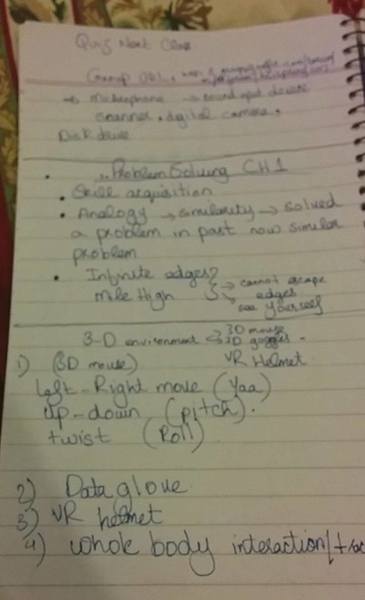 Quiz Next Class
Group 021,
→ Microphone → sound input device
scanner, digital camera,
Disk drive
• Problem Solving CH 1
• Skill acquisition
• Analogy → similarity → solved
a problem in past now similar
problem
• Infinite edges? → cannot escape
Mile High → edges
see yourself
3-D environment 3D mouse
3D goggles
1) (3D mouse) VR Helmet
Left-Right move (Yaa)
up-down (Pitch).
twist (Roll)
2) Data glove
3) VR helmet
4) whole body interaction/trac